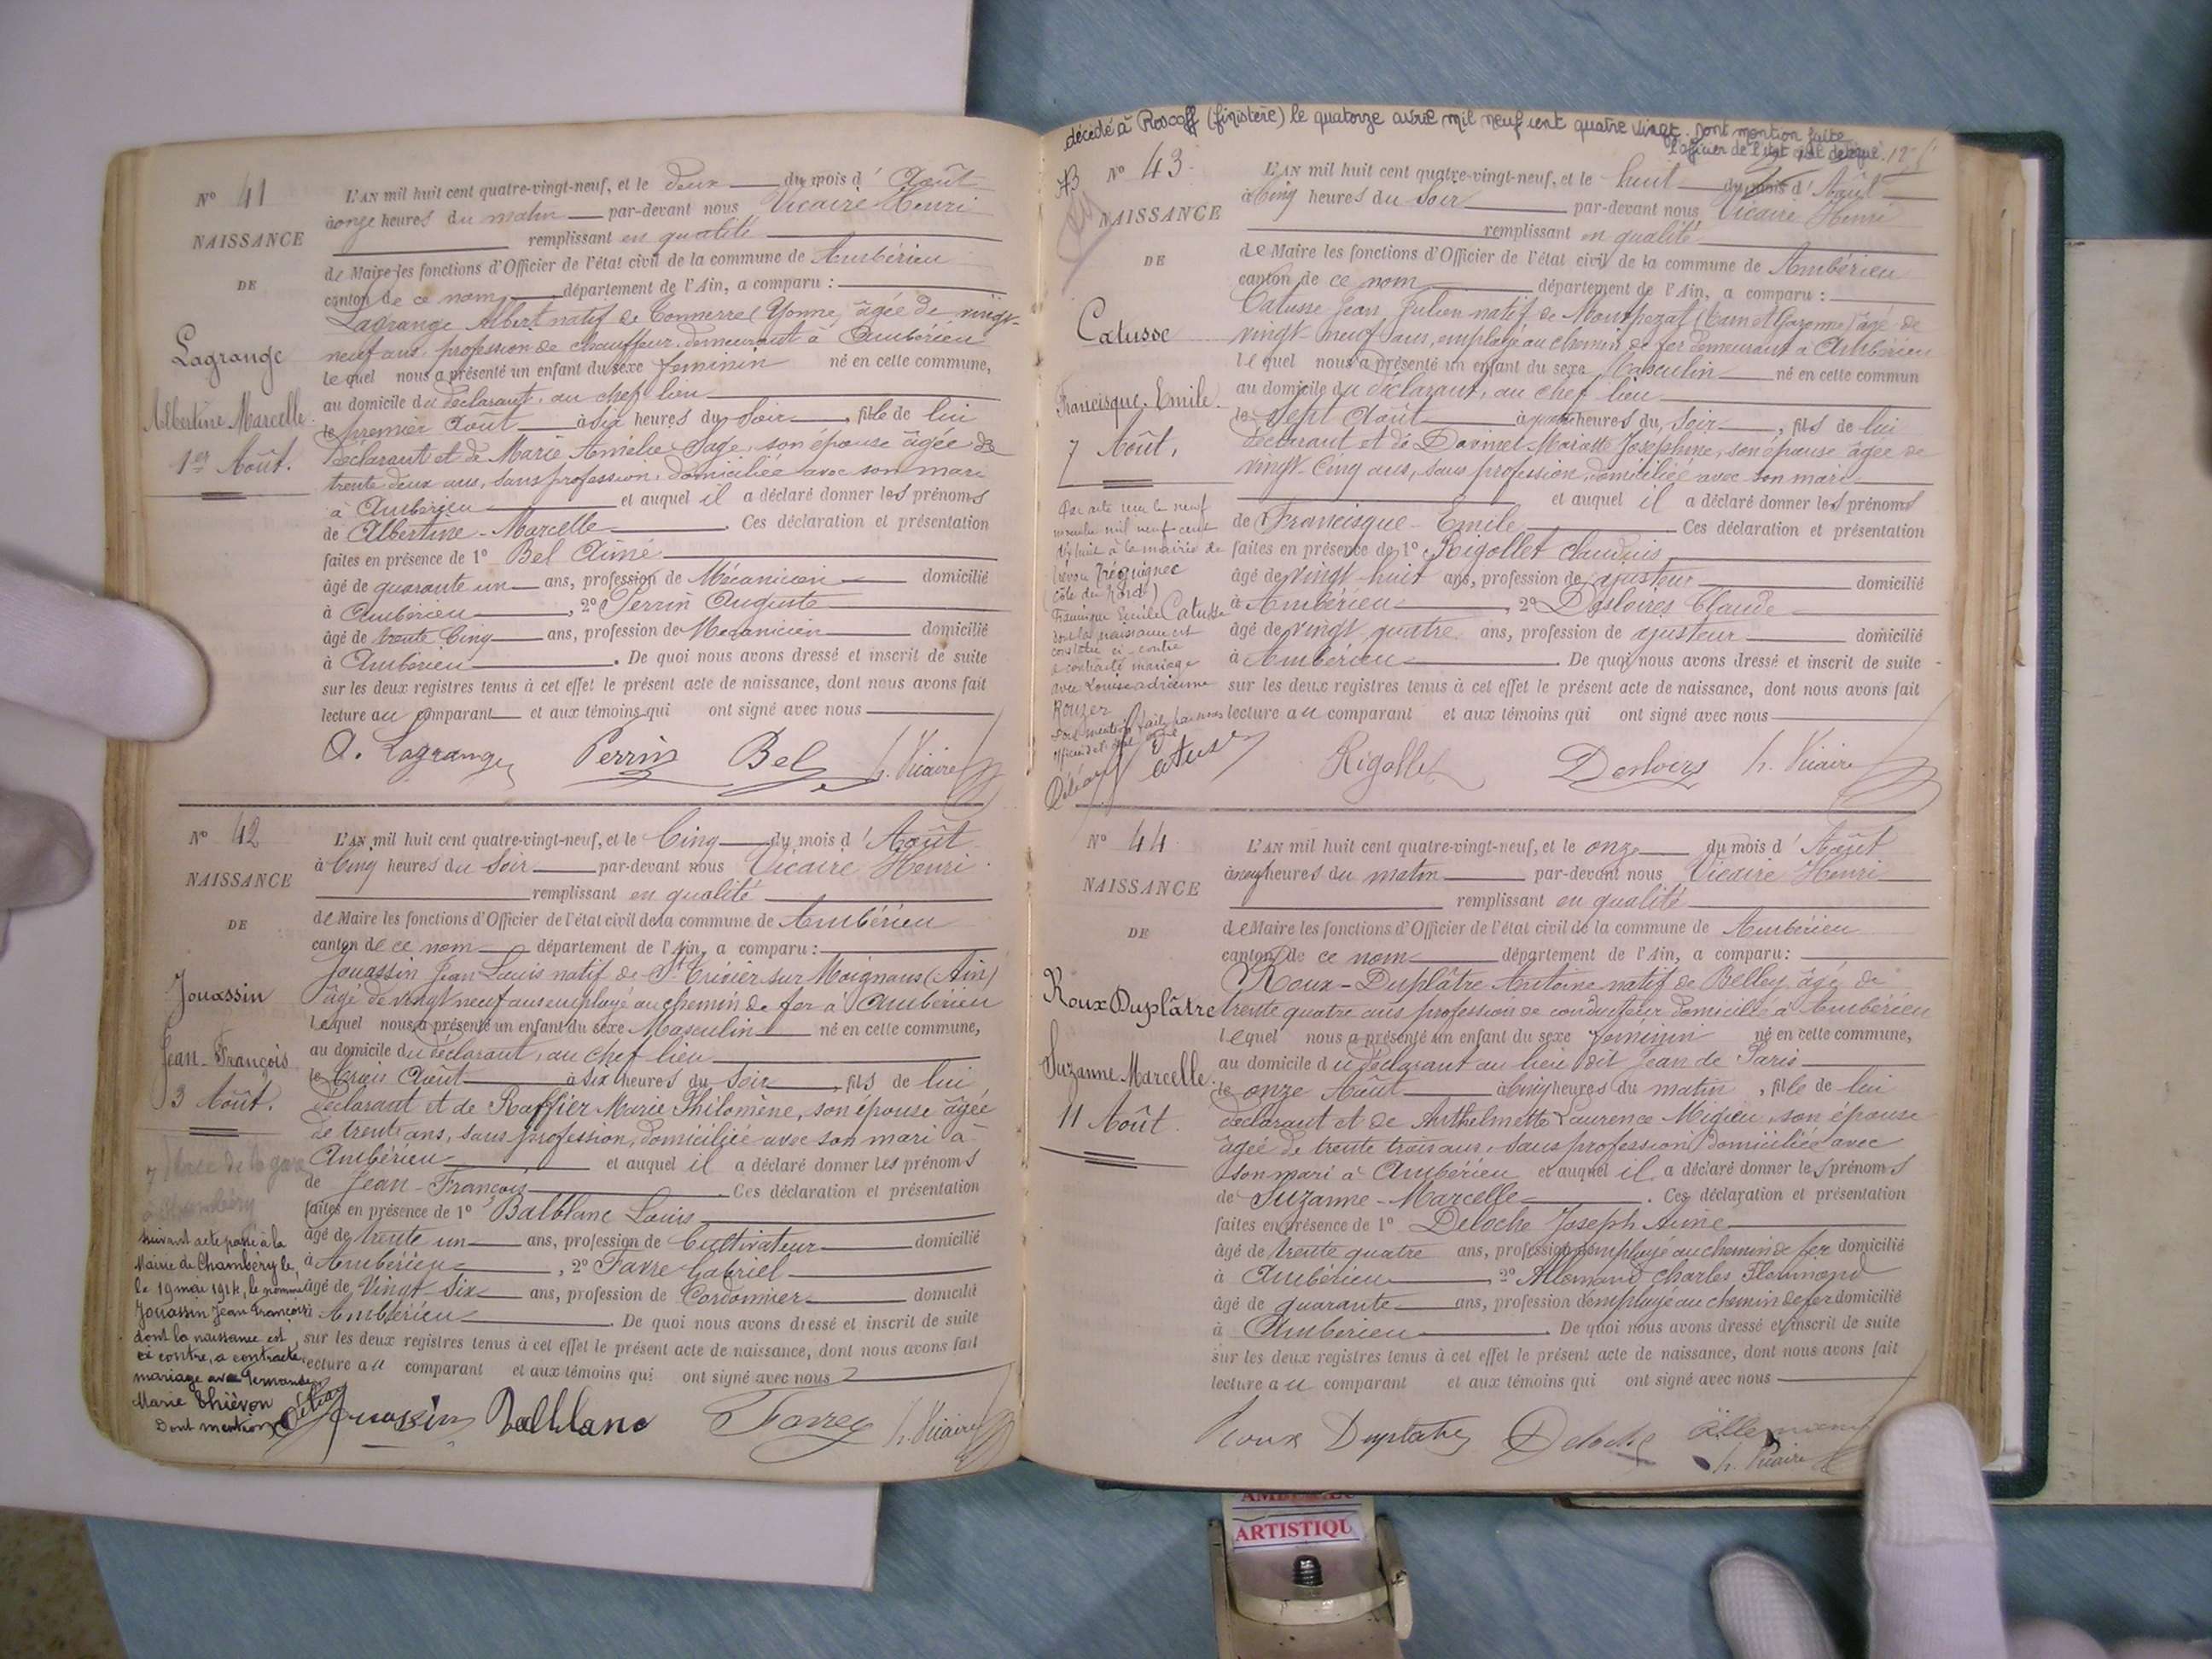 N° 41
NAISSANCE
DE
Lagrange
Albertine Marcelle
1er Août.
L'AN mil huit cent quatre-vingt-neuf, et le deux du mois d'Août
à onze heures du matin par-devant nous Vicaire Henri
remplissant en qualité
de Maire les fonctions d'Officier de l'état civil de la commune de Ambérieu
canton de ce nom département de l'Ain, a comparu :
Lagrange Albert natif de Tonnerre (Yonne) âgée de vingt-
neuf ans, profession de chauffeur demeurant à Ambérieu
lequel nous a présenté un enfant du sexe feminin né en cette commune,
au domicile du déclarant, au chef lieu
le premier Août à six heures du soir, fille de lui
déclarant et de Marie Amélie Sage, son épouse âgée de
trente deux ans, sans profession, domiciliée avec son mari
à Ambérieu et auquel il a déclaré donner les prénoms
de Albertine-Marcelle. Ces déclaration et présentation
faites en présence de 1° Bel Aimé
âgé de quarante un ans, profession de Mécanicien domicilié
à Ambérieu, 2° Perrin Auguste
âgé de trente Cinq ans, profession de Mecanicien domicilié
à Ambérieu. De quoi nous avons dressé et inscrit de suite
sur les deux registres tenus à cet effet le présent acte de naissance, dont nous avons fait
lecture au comparant et aux témoins qui ont signé avec nous
A. Lagrange Perrin Bel h. Vicaire
N° 42
NAISSANCE
DE
Jouassin
Jean-François
3 Août.
7 Place de la gare
à Chambéry
Suivant acte passé à la
Mairie de Chambéry le,
le 19 mai 1914, le nommé
Jouassin Jean François
dont la naissance est
ci contre, a contracté
mariage avec Fernande
Marie Thiévon
Dont mention
L'AN mil huit cent quatre-vingt-neuf, et le Cinq du mois d'Août
à Cinq heures du Soir par-devant nous Vicaire Henri
remplissant en qualité
de Maire les fonctions d'Officier de l'état civil de la commune de Ambérieu
canton de ce nom département de l'Ain, a comparu :
Jouassin Jean Louis natif de St Trivier sur Moignans (Ain)
âgé de vingt neuf ans employé au chemin de fer à Ambérieu
lequel nous a présenté un enfant du sexe Masculin né en cette commune,
au domicile du déclarant, au chef lieu
le trois Août à six heures du Soir, fils de lui
déclarant et de Raffier Marie Philomène, son épouse âgée
de trente ans, sans profession, domiciliée avec son mari à
Ambérieu et auquel il a déclaré donner les prénoms
de Jean-François Ces déclaration et présentation
faites en présence de 1° Balblanc Louis
âgé de trente un ans, profession de Cultivateur domicilié
à Ambérieu, 2° Favre Gabriel
âgé de Vingt Six ans, profession de Cordonnier domicilié
à Ambérieu. De quoi nous avons dressé et inscrit de suite
sur les deux registres tenus à cet effet le présent acte de naissance, dont nous avons fait
lecture au comparant et aux témoins qui ont signé avec nous
Jouassin Balblanc Favre h. Vicaire
décédé à Roscoff (finistère) le quatorze avril mil neuf cent quatre vingt. Dont mention faite
l'officier de l'état civil délégué.
N° 43
NAISSANCE
DE
Catusse
Francisque-Emile
7 Août,
Par acte reçu le neuf
mil neuf cent
dix huit à la mairie de
Trévou Tréguignec
(côte du Nord)
Francisque Emile Catusse
dont la naissance est
constatée ci-contre
a contracté mariage
avec Louise Adrienne
Rouzer
L'AN mil huit cent quatre-vingt-neuf, et le huit du mois d'Août
à Cinq heures du Soir par-devant nous Vicaire Henri
remplissant en qualité
de Maire les fonctions d'Officier de l'état civil de la commune de Ambérieu
canton de ce nom département de l'Ain, a comparu :
Catusse Jean, Julien natif de Montpezat (Tarn et Garonne) âgé de
vingt-neuf ans, employé au chemin de fer demeurant à Ambérieu
lequel nous a présenté un enfant du sexe Masculin né en cette commun
au domicile du déclarant, au chef lieu
le Sept Août à heures du Soir, fils de lui
déclarant et de Josephine, son épouse âgée de
vingt-Cinq ans, sans profession, domiciliée avec son mari
et auquel il a déclaré donner les prénoms
de Francisque-Emile Ces déclaration et présentation
faites en présence de 1° Rigollet Claudius
âgé de vingt huit ans, profession de ajusteur domicilié
à Ambérieu, 2° Desloires Claude
âgé de vingt quatre ans, profession de ajusteur domicilié
à Ambérieu. De quoi nous avons dressé et inscrit de suite
sur les deux registres tenus à cet effet le présent acte de naissance, dont nous avons fait
lecture au comparant et aux témoins qui ont signé avec nous
Catusse Rigollet h. Vicaire
N° 44
NAISSANCE
DE
Roux Duplâtre
Suzanne-Marcelle.
11 Août.
L'AN mil huit cent quatre-vingt-neuf, et le onze du mois d'Août
à heures du matin par-devant nous Vicaire Henri
remplissant en qualité
de Maire les fonctions d'Officier de l'état civil de la commune de Ambérieu
canton de ce nom département de l'Ain, a comparu :
Roux-Duplâtre Antoine natif de Belley âgé de
trente quatre ans profession de conducteur domicilié à Ambérieu
lequel nous a présenté un enfant du sexe feminin né en cette commune,
au domicile du déclarant au lieu dit Jean de Paris
le onze Août à cinq heures du matin, fille de lui
déclarant et de Anthelmette Laurence Migieu, son épouse
âgée de trente trois ans, sans profession Domiciliée avec
son mari à Ambérieu et auquel il a déclaré donner les prénoms
de Suzanne-Marcelle. Ces déclaration et présentation
faites en présence de 1° Deloche Joseph Aimé
âgé de trente quatre ans, profession employé au chemin de fer domicilié
à Ambérieu 2° Allemand Charles
âgé de quarante ans, profession d'employé au chemin de fer domicilié
à Ambérieu De quoi nous avons dressé et inscrit de suite
sur les deux registres tenus à cet effet le présent acte de naissance, dont nous avons fait
lecture au comparant et aux témoins qui ont signé avec nous
Roux Duplatre Deloche Allemand
h. Vicaire
ARTISTIQU